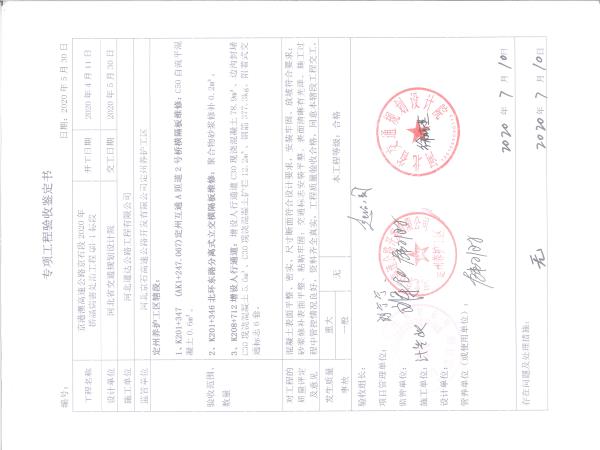 专项工程验收鉴定书
编号:
日期: 2020 年 5 月 30 日
工程名称
京港澳高速公路京石段 2020 年
桥涵病害处治工程 QH-1 标段
开工日期
2020 年 4 月 11 日
设计单位
河北省交通规划设计院
交工日期
2020 年 5 月 30 日
施工单位
河北道达公路工程有限公司
监管单位
河北京石高速公路开发有限公司定州养护工区
验收范围、
数量
定州养护工区辖段:
1、K201+347 (AK1+247.067)定州互通 A 匝道 2 号桥横隔板维修: C50 自流平混
凝土 0.6m³。
2、K201+346 北环东路分离式立交横隔板维修: 聚合物砂浆修补 0.2m²。
3、K208+712 增设人行通道: 增设人行通道 C30 现浇混凝土 78.9m³、边沟封堵
C30 现浇混凝土 5.6m³、C30 现浇混凝土护栏 12.2m³、钢筋 377.3kg、附着式交
通标志 6 套。
对工程的
质量评定
及意见
混凝土表面平整、密实,尺寸断面符合设计要求,安装牢固、放坡符合要求;
砂浆修补表面平整、粘贴牢固;交通标志安装平整、表面清晰有光泽。施工过
程中管控情况良好,资料齐全真实,工程质量验收合格,同意本辖段工程交工。
发生质量
事故
重大
一般
无
本工程等级: 合格
验收组长:
项目管理单位:
监管单位:
施工单位:
设计单位:
管养单位(或使用单位):
河北省交通规划设计院
定州养护工区
2020 年 7 月 10 日
存在问题及处理措施:
无
2020 年 7 月 10 日